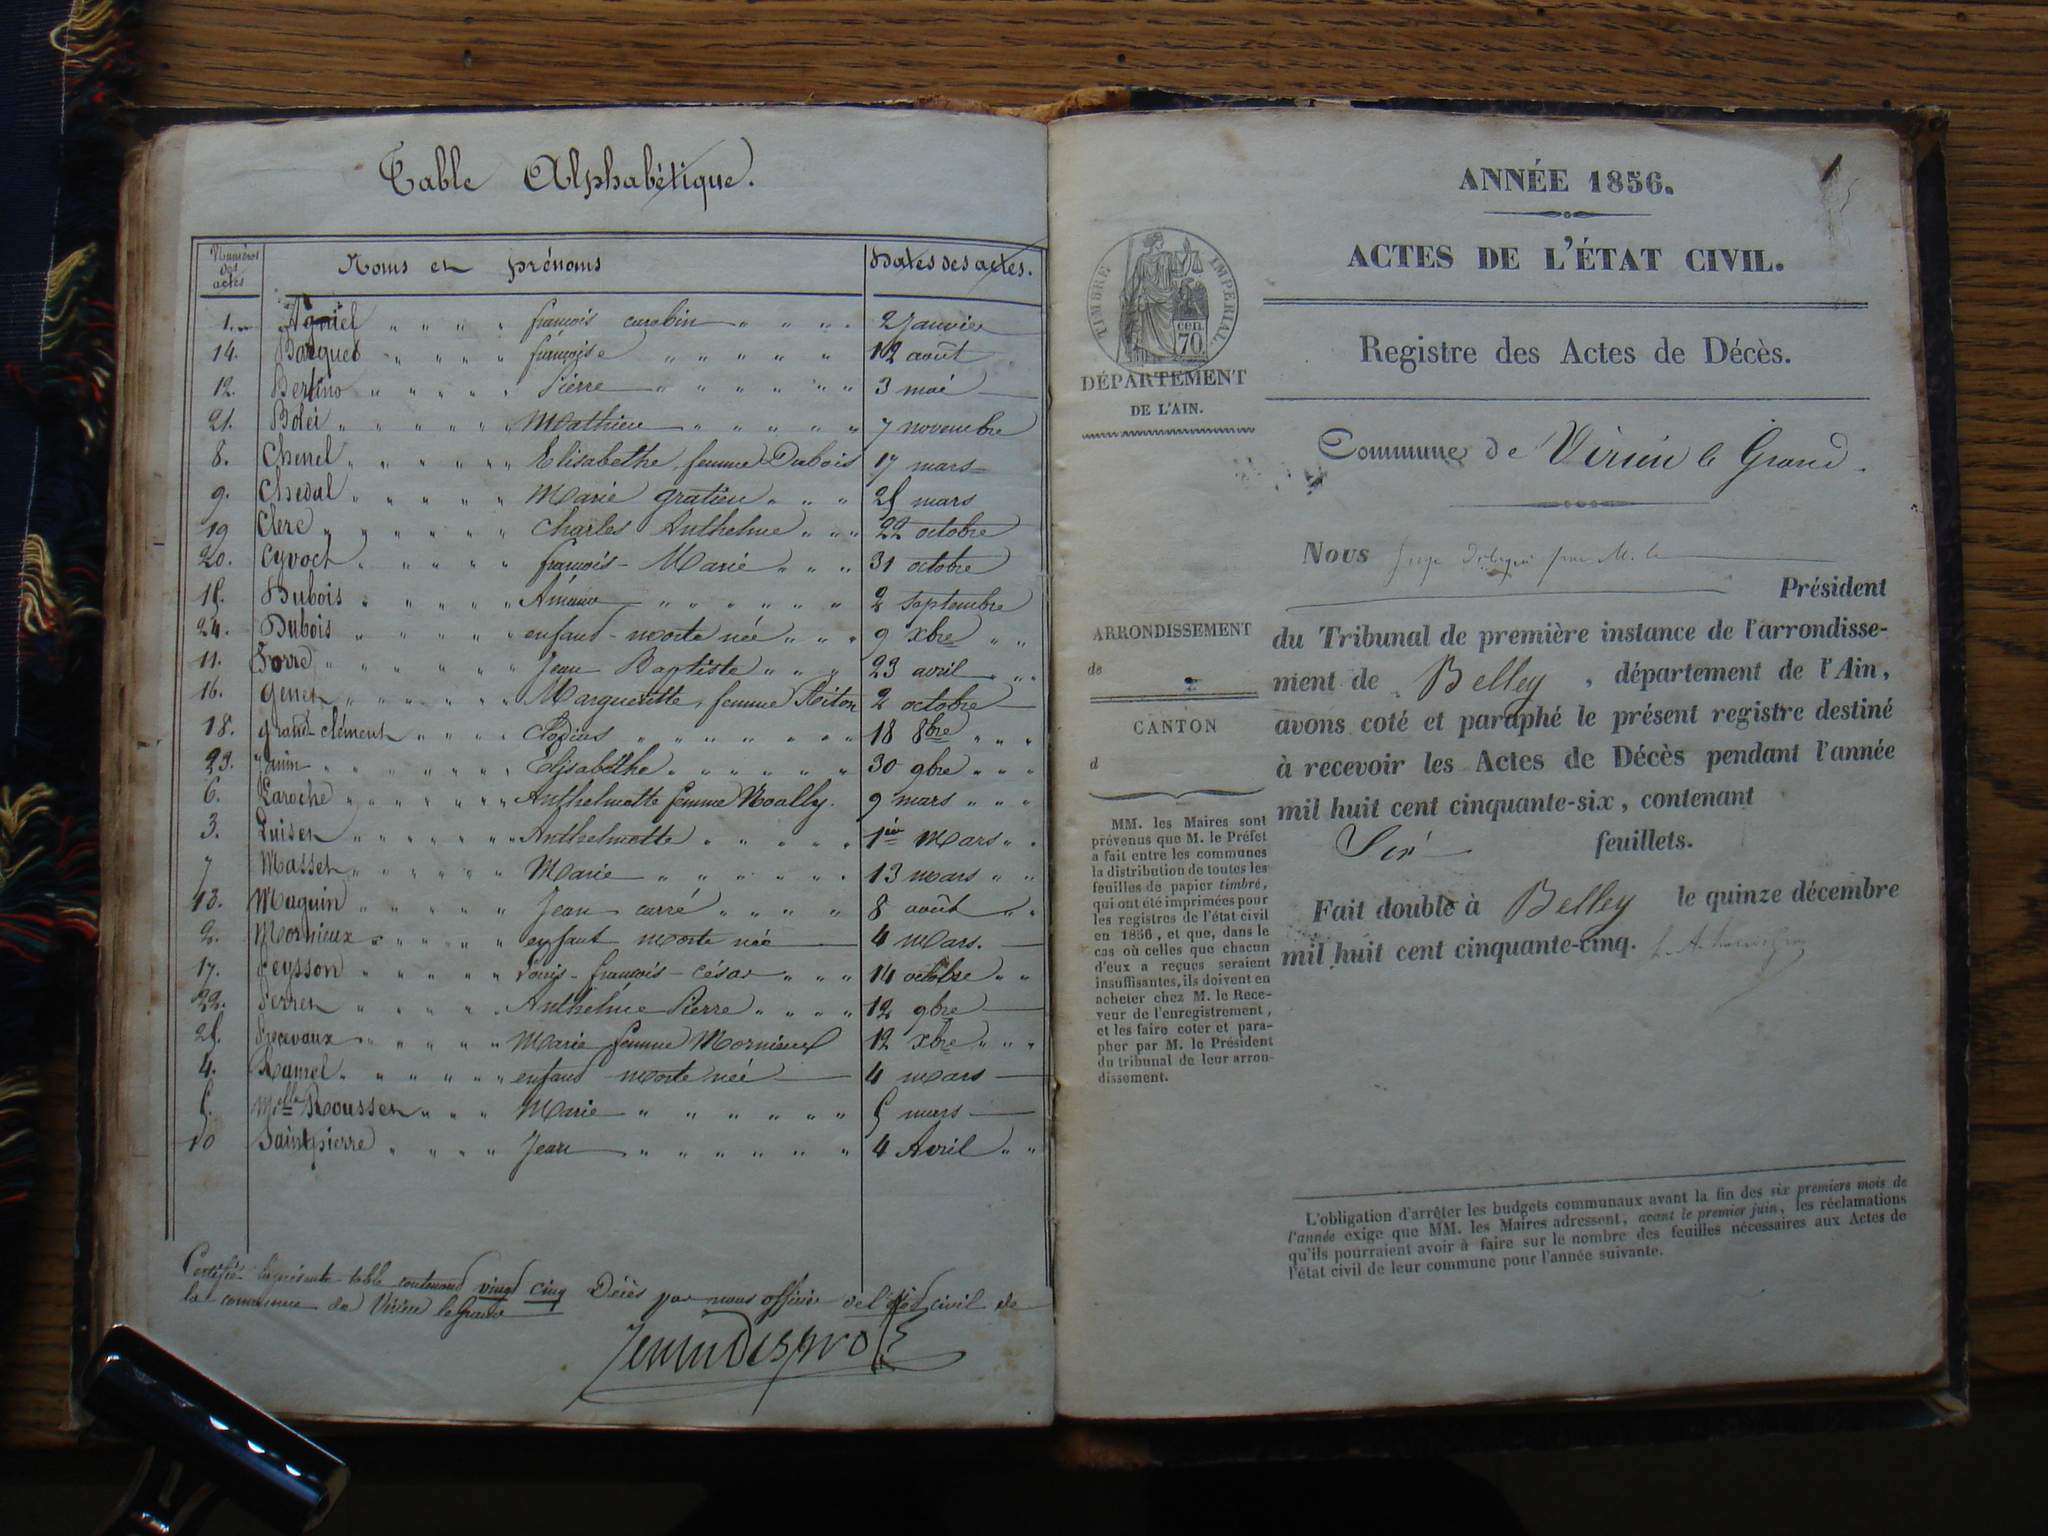 Table Alphabétique.
Numéros des actes Noms et prénoms Dates des actes.
1. françois 2 Janvier
14. françoise 12 août
12. Bertino Pierre 3 mai
21. Bolei Mathieu 7 novembre
8. Chenel Elisabethe, femme Dubois 17 mars
9. Chedal Marie gratien 25 mars
19 Clerc Charles Anthelme 22 octobre
20. Cyvoct françois-Marie 31 octobre
15. Dubois 2 septembre
24. Dubois enfant-morte née 9 xbre
11. Forre Jean Baptiste 23 avril
16. Genet Margueritte, femme 2 octobre
18. grand-clément 18 8bre
23. Janin Elisabethe 30 9bre
6. Laroche Anthelmette femme 9 mars
3. Luiset Anthelmette 1er Mars
7 Masset Marie 13 mars
13. Maguin Jean carré 8 août
2. Mornieux enfant morte née 4 mars.
17. Peysson Louis-françois-césar 14 octobre
22. Perret Anthelme Pierre 12 9bre
25. Precevaux Marie femme Mornieux 12 xbre
4. Ramel enfant morte née 4 mars
5. Melle Rousset Marie 5 mars
10 Saintpierre Jean 4 Avril
Certifié la présente table contenant vingt cinq Décès par nous officier de l'état civil de
la commune de Virieu le Grand
ANNÉE 1856.
ACTES DE L'ÉTAT CIVIL.
TIMBRE IMPÉRIAL.
70 cen.
DÉPARTEMENT
DE L'AIN.
Registre des Actes de Décès.
Commune de Virieu le Grand.
Nous
Président
du Tribunal de première instance de l'arrondisse-
ment de Belley, département de l'Ain,
avons coté et paraphé le présent registre destiné
à recevoir les Actes de Décès pendant l'année
mil huit cent cinquante-six, contenant
Six feuillets.
Fait double à Belley le quinze décembre
mil huit cent cinquante-cinq.
ARRONDISSEMENT
de
CANTON
d
MM. les Maires sont
prévenus que M. le Préfet
a fait entre les communes
la distribution de toutes les
feuilles de papier timbré,
qui ont été imprimées pour
les registres de l'état civil
en 1856, et que, dans le
cas où celles que chacun
d'eux a reçues seraient
insuffisantes, ils doivent en
acheter chez M. le Rece-
veur de l'enregistrement,
et les faire coter et para-
pher par M. le Président
du tribunal de leur arron-
dissement.
L'obligation d'arrêter les budgets communaux avant la fin des six premiers mois de
l'année exige que MM. les Maires adressent, avant le premier juin, les réclamations
qu'ils pourraient avoir à faire sur le nombre des feuilles nécessaires aux Actes de
l'état civil de leur commune pour l'année suivante.